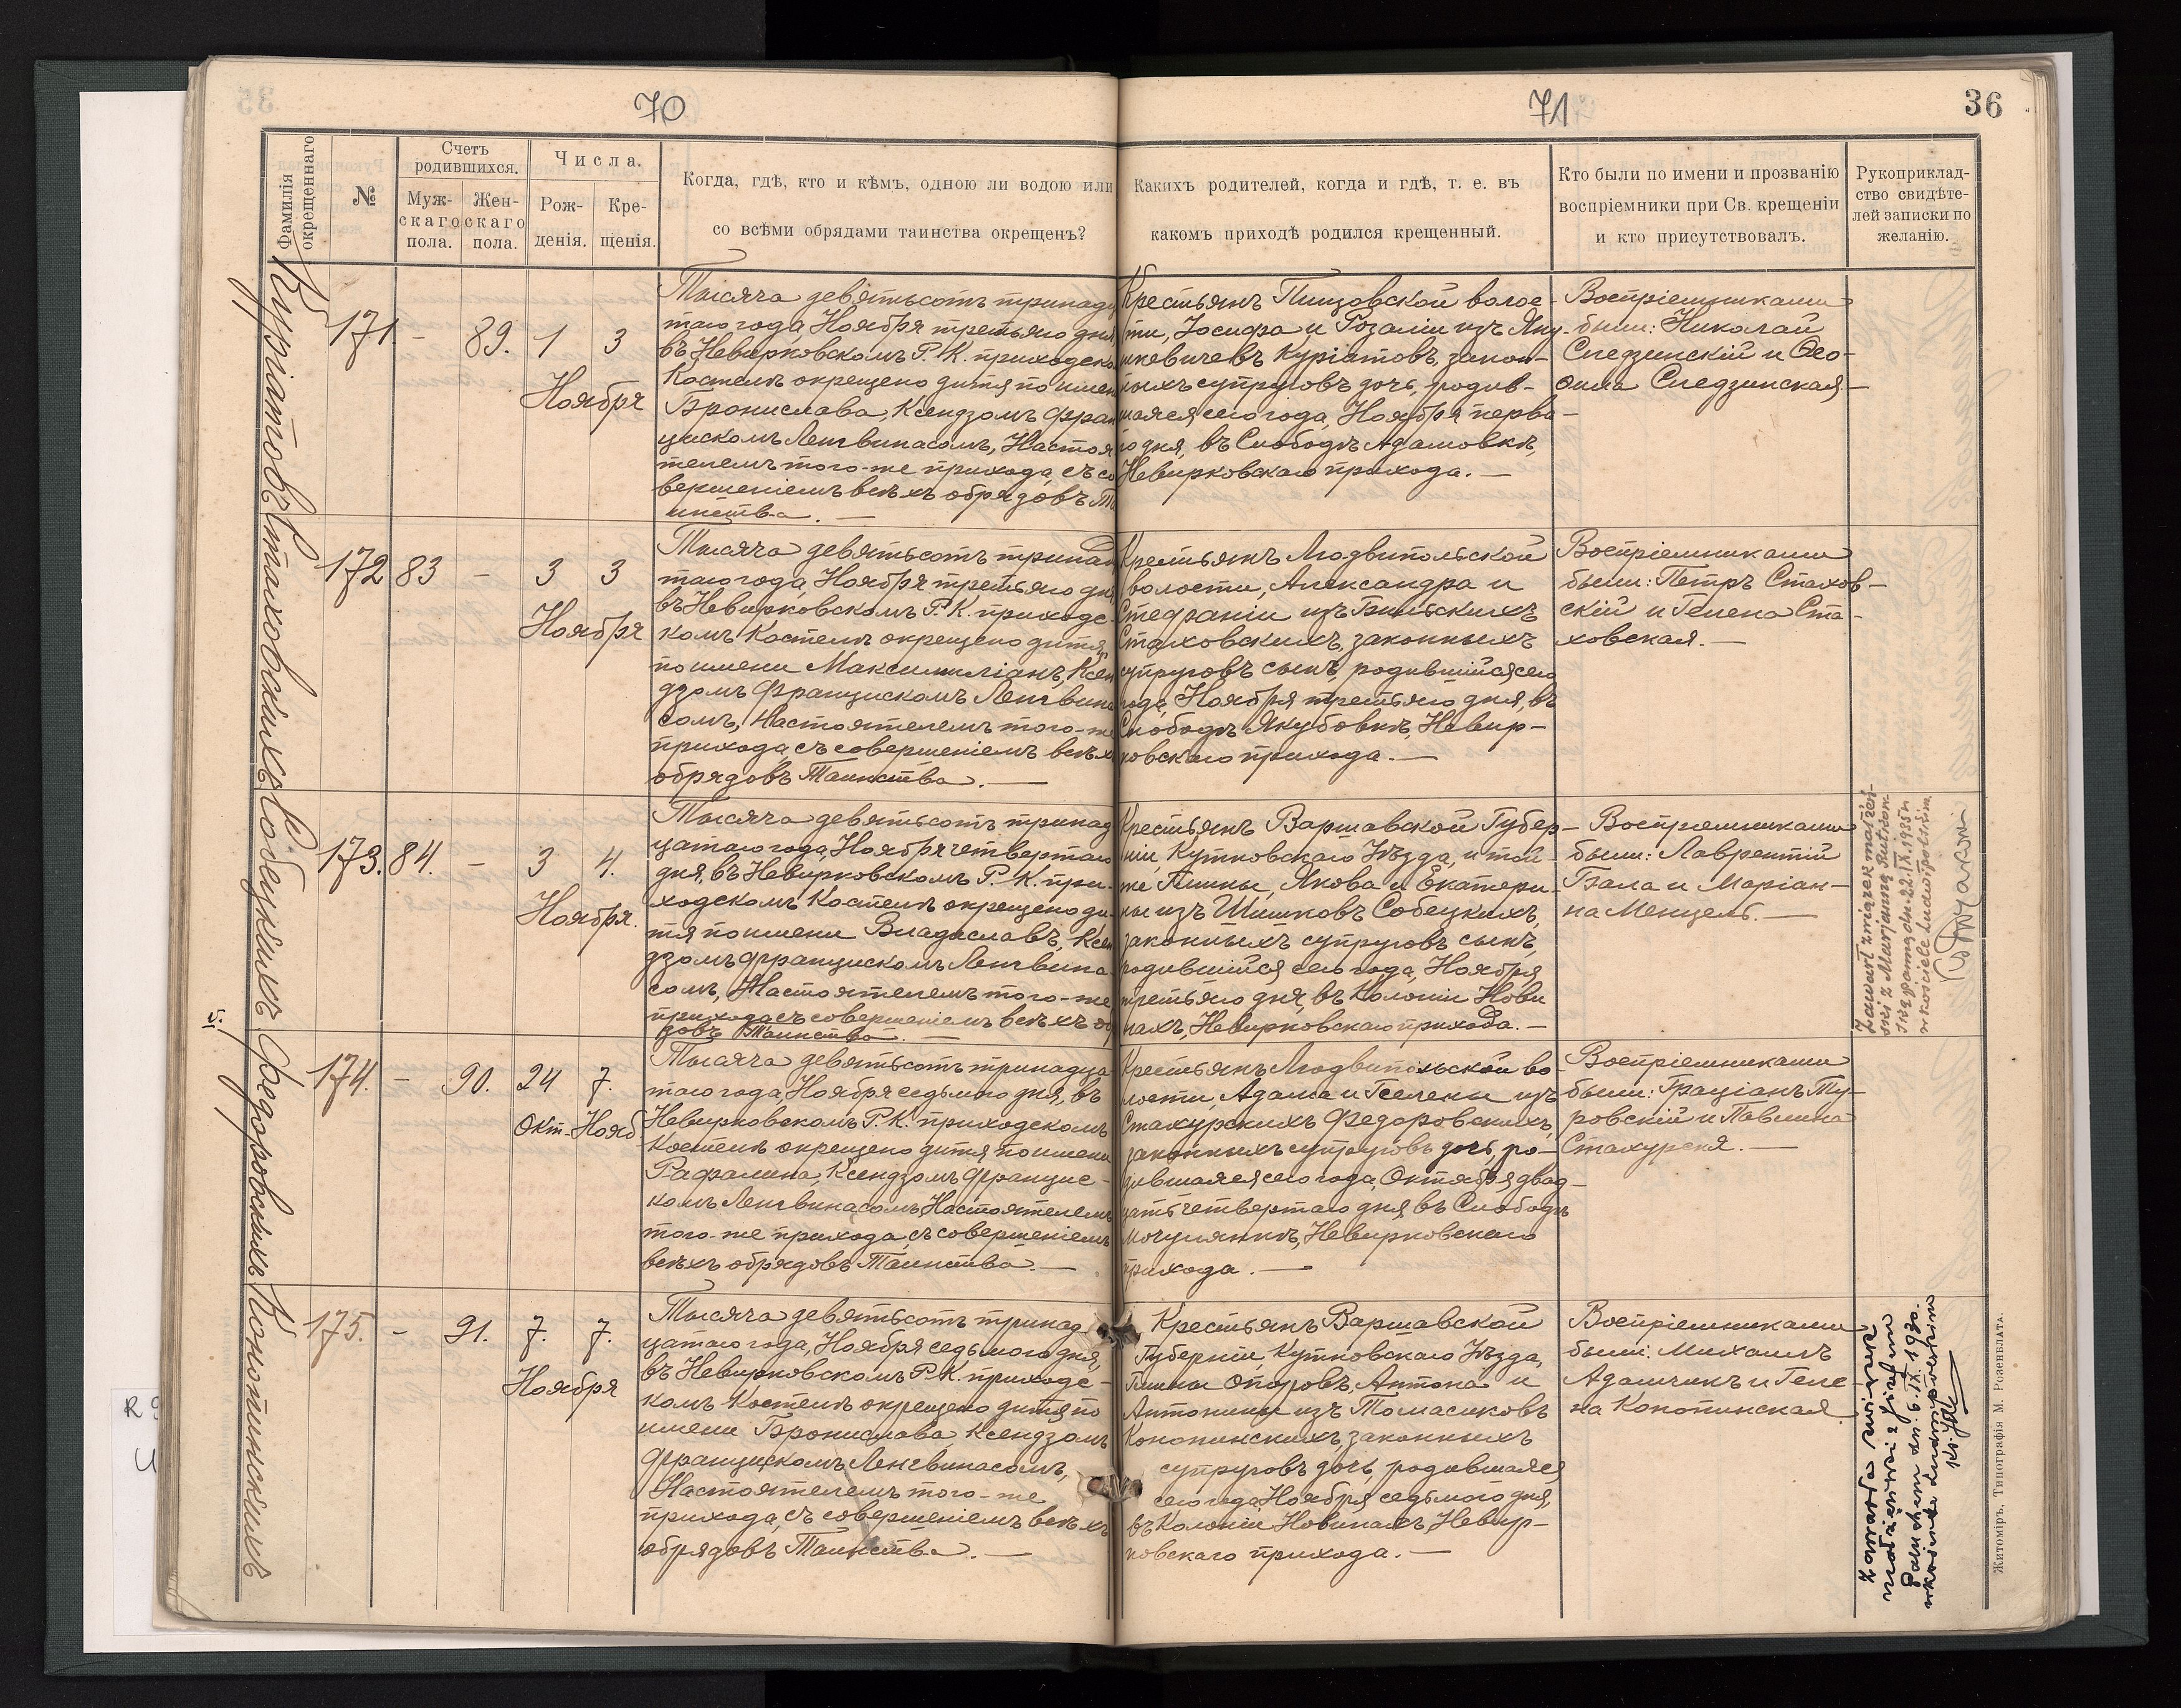 70
71
36
Фамилія окрещеннаго
№
Счетъ родившихся.
Мужскаго пола.
Женскаго пола.
Числа.
Рожденія.
Крещенія.
Когда, гдѣ, кто и кѣмъ, одною ли водою или
со всѣми обрядами таинства окрещенъ?
Какихъ родителей, когда и гдѣ, т. е. въ
какомъ приходѣ родился крещенный.
Кто были по имени и прозванію
воспріемники при Св. крещеніи
и кто присутствовалъ.
Рукоприклад-
ство свидѣте-
лей записки по
желанію.
Куріатовъ
171. - 89. 1 3
Ноября
Тысяча девятьсотъ тринадца
таго года, Ноября третьяго дня
въ Невирковскомъ Р. К. приходско
Костелѣ окрещено дитя по имен
Бронислава, Ксендзомъ Фран
цискомъ Ленгвинасомъ, Настоя
телемъ того-же прихода, съ со
вершеніемъ всѣхъ обрядовъ Та
инства. —
Крестьянъ волос-
ти, Іосифа и Розаліи изъ Яну-
шкевичевъ Куріатовъ, закон-
ныхъ супруговъ дочь, родив-
шаяся сего года, Ноября перва-
го дня, въ Слободѣ Адамовкѣ,
Невирковскаго прихода. —
Воспріемниками
были: Николай
Следзинскій и Ѳео-
фила Следзинская. —
Стаховскихъ
172 83 - 3 3
Ноября
Тысяча девятьсотъ тринад
таго года, Ноября третьяго дня
въ Невирковскомъ Р. К. приходс
комъ Костелѣ окрещено дитя
по имени Максимиліанъ, Ксен
дзомъ Францискомъ Ленгвина
сомъ, Настоятелемъ того-же
прихода, съ совершеніемъ всѣхъ
обрядовъ Таинства. —
Крестьянъ Людвипольской
волости, Александра и
Стефаніи изъ Бильскихъ
Стаховскихъ, законныхъ
супруговъ сынъ, родившійся сего
года, Ноября третьяго дня, въ
Слободѣ Якубовкѣ, Невир-
ковскаго прихода. —
Воспріемниками
были: Петръ Стахов-
скій и Гелена Ста-
ховская. —
Собецкихъ
173. 84. - 3 4.
Ноября.
Тысяча девятьсотъ тринад
цатаго года, Ноября четвертаго
дня, въ Невирковскомъ Р. К. при-
ходскомъ Костелѣ окрещено ди-
тя по имени Владиславъ, Ксен
дзомъ Францискомъ Ленгвина-
сомъ, Настоятелемъ того-же
прихода, съ совершеніемъ всѣхъ об
довъ Таинства. —
Крестьянъ Варшавской Губер-
ніи, Кутновскаго Уѣзда, и той-
же Гмины, Якова и Екатери-
ны изъ Шишковъ Собецкихъ,
законныхъ супруговъ сынъ,
родившійся сего года, Ноября
третьяго дня, въ Колоніи Нови
нахъ, Невирковскаго прихода. —
Воспріемниками
были: Лаврентій
Бала и Маріан-
на Менцель. —
Zawarł związek małżeń-
ski z Marjanną
dn. 22.IX.1935 r.
w kościele Ludwipolskim
Федоровскихъ
174. - 90. 24 7.
Окт- Нояб
Тысяча девятьсотъ тринадца
таго года, Ноября седьмого дня, въ
Невирковскомъ Р. К. приходскомъ
Костелѣ окрещено дитя по имени
Рафалина, Ксендзомъ Францис-
комъ Ленгвинасомъ, Настоятелемъ
того-же прихода, съ совершеніемъ
всѣхъ обрядовъ Таинства. —
Крестьянъ Людвипольской во-
лости, Адама и Гелены изъ
Стахурскихъ Федоровскихъ,
законныхъ супруговъ дочь, ро-
дившаяся сего года, Октября двад-
цать четвертаго дня въ Слободѣ
Мочулянкѣ, Невирковскаго
прихода. —
Воспріемниками
были: Граціанъ Ту-
ровскій и Павлина
Стахурская. —
Конопинскихъ
175. - 91. 7. 7.
Ноября
Тысяча девятьсотъ тринад
цатаго года, Ноября седьмого дня,
въ Невирковскомъ Р. К. приходс-
комъ Костелѣ окрещено дитя по
имени Бронислава, Ксендзомъ
Францискомъ Ленгвинасомъ,
Настоятелемъ того-же
прихода, съ совершеніемъ всѣхъ
обрядовъ Таинства. —
Крестьянъ Варшавской
Губерніи, Кутновскаго Уѣзда,
Гмины Опоровъ, Антона и
Антонины изъ Томасиковъ
Конопинскихъ, законныхъ
супруговъ дочь, родившаяся
сего года, Ноября седьмого дня,
въ Колоніи Новинахъ, Невир-
ковскаго прихода. —
Воспріемниками
были: Михаилъ
Адамчикъ и Геле-
на Конопинская.
Zawarła związek
małżeński z Józefem
dn. 6.IX.1930.
Житоміръ, Типографія М. Розенблата.